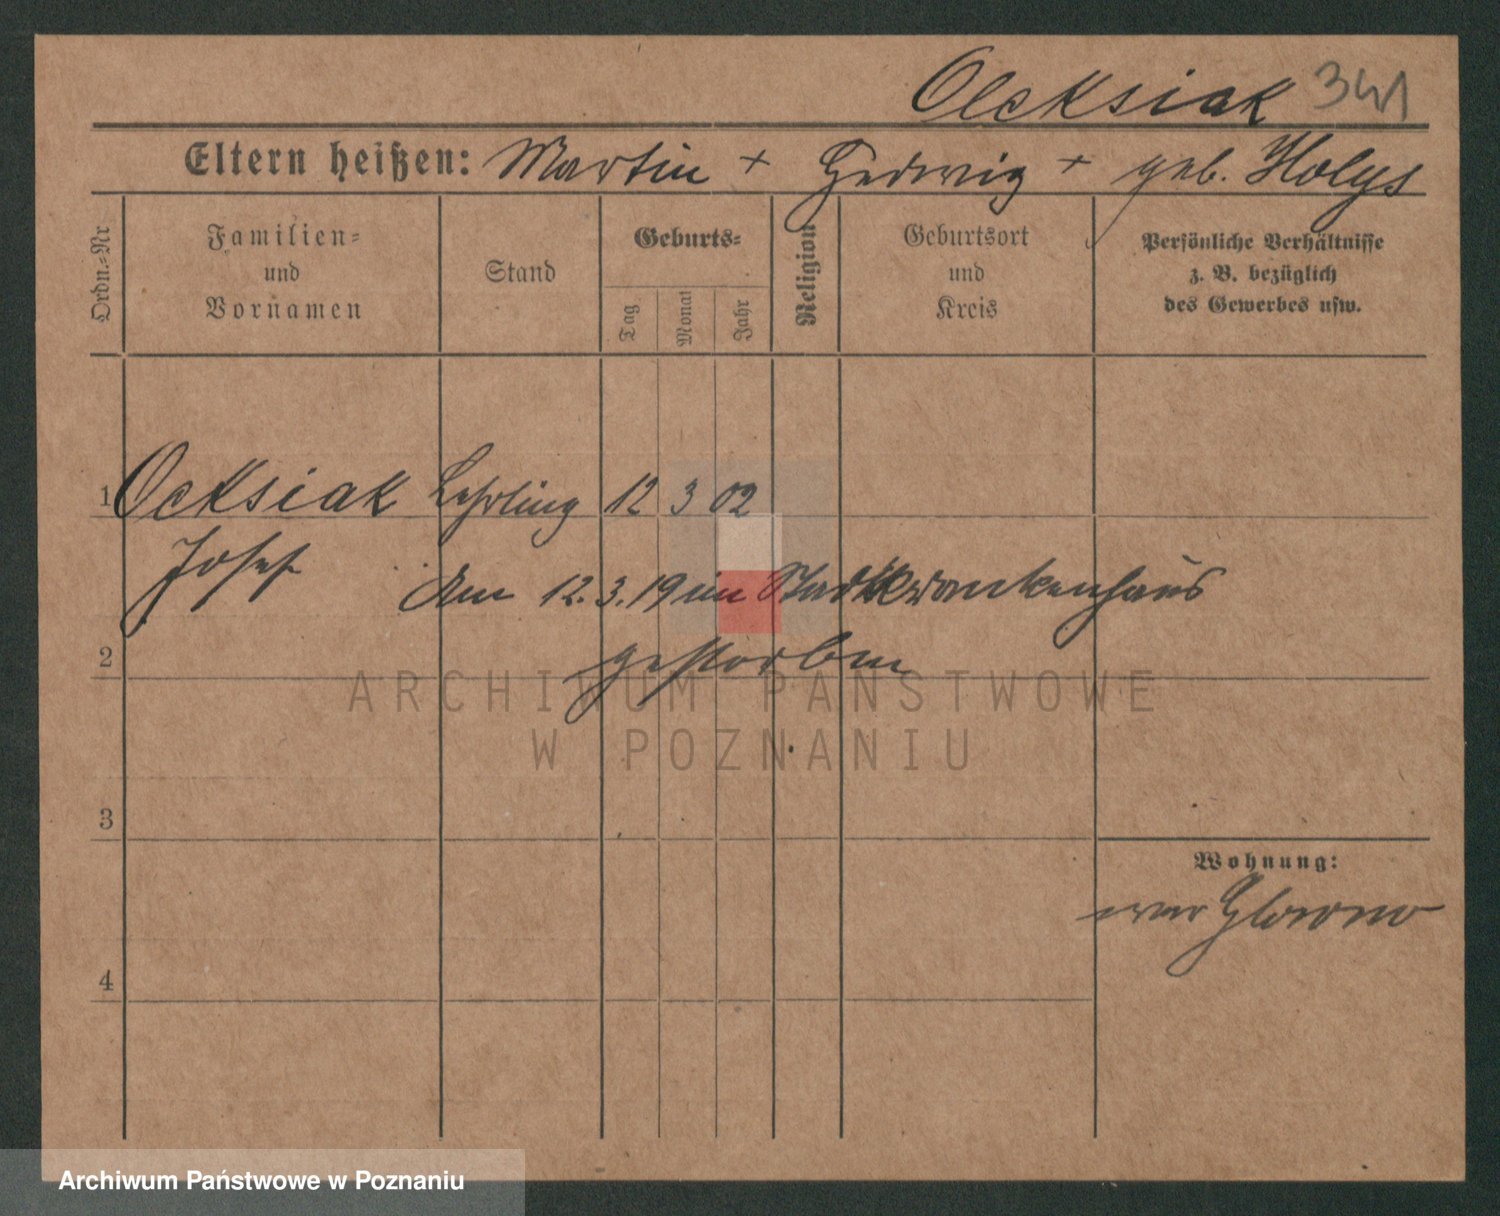 Olcksiak 341
Eltern heißen: Martin + Hedwig + geb. Holys
Ordn.-Nr
Familien-
und
Vornamen
Stand
Geburts-
Tag
Monat
Jahr
Religion
Geburtsort
und
Kreis
Persönliche Verhältnisse
z. B. bezüglich
des Gewerbes usw.
1 Ocksiak Lehrling 12 3 02
Josef
Am 12.3.19 im Stadtkrankenhaus
2
gestorben
ARCHIWUM PAŃSTWOWE
W POZNANIU
3
Wohnung:
4
Archiwum Państwowe w Poznaniu